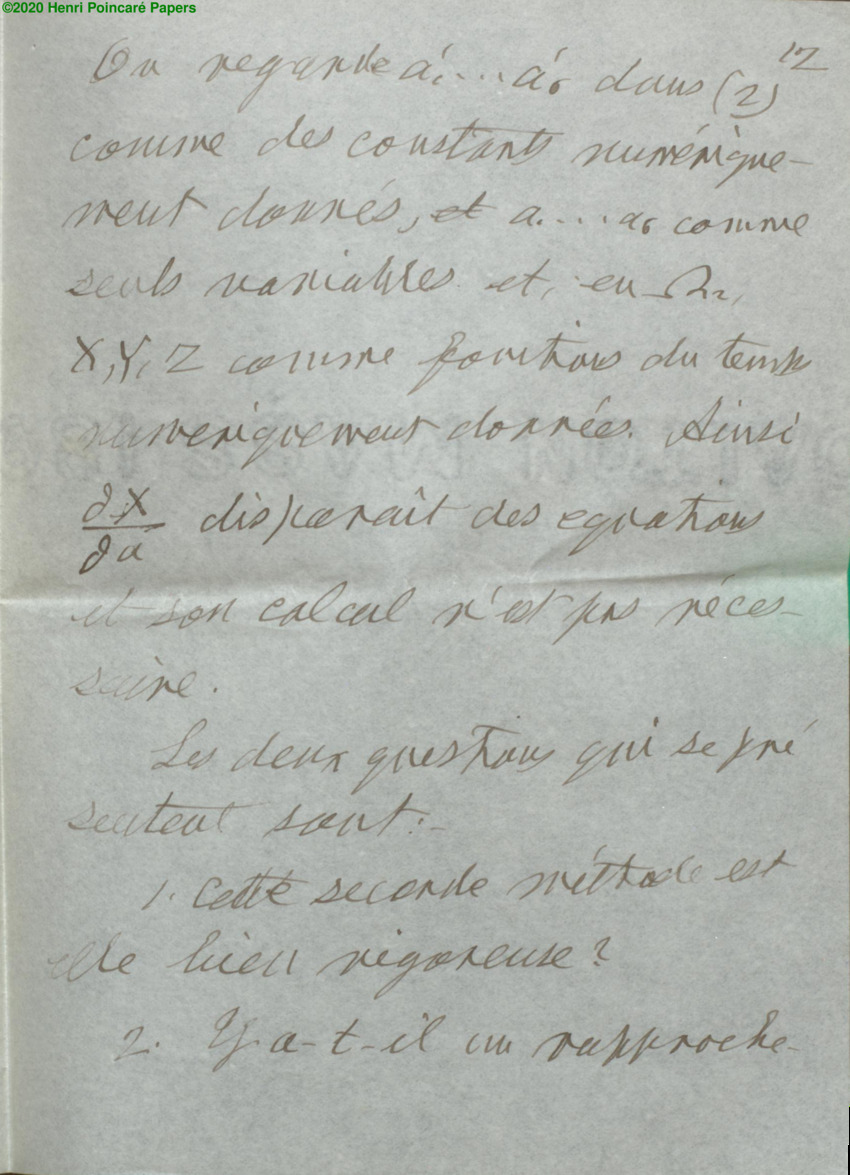 ©2020 Henri Poincaré Papers
12
On regarde a'1....a'6 dans (2)
comme des constants numérique-
ment donnés, et a1....a6 comme
seuls variables et, en Ω2,
X, Y, Z comme fonctions du temps
numeriquement données. Ainsi
∂X/∂a disparaît des equations
et son calcul n'est pas néces-
saire.
Les deux questions qui se pré
sentent sont:-
1. Cette seconde méthode est
elle bien rigoreuse?
2. Y-a-t-il un rapproche-